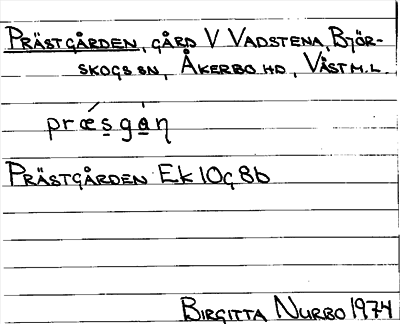 PRÄSTGÅRDEN, GÅRD V VADSTENA, BJÖR-
SKOGS SN, ÅKERBO HD, VÄSTM.L.
præ´s̲gȧ̲ŋ
PRÄSTGÅRDEN Ek 10g8b
BIRGITTA NURBO 1974